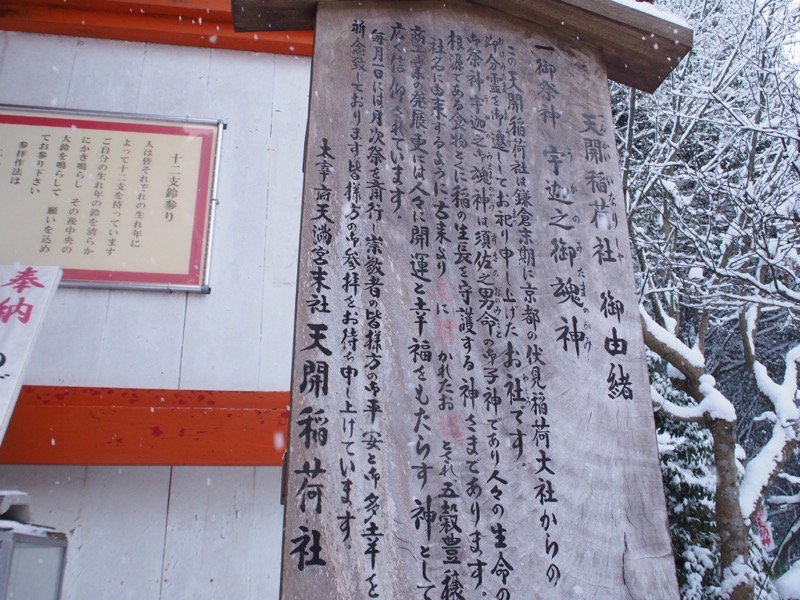 天開稲荷社 御由緒
なりしゃ
一、御祭神 宇迦之御魂神
うかのみたまのかみ
この天開稲荷社は鎌倉末期に京都の伏見稲荷大社からの
御分霊を御遷してお祀り申し上げたお社です。
御祭神宇迦之御魂神は須佐之男命の御子神であり人々の生命の
根源である食物とくに稲の生長を守護する神さまであります。
社名に由来するように古来より に かれたお とされ五穀豊穣
商工業の発展更には人々に開運と幸福をもたらす神として
広く信仰されています。
毎月一日には月次祭を斎行し崇敬者の皆様方の御平安と御多幸を
祈念致しております皆様方の御参拝をお待ち申し上げています。
太宰府天満宮末社 天開稲荷社
十二支鈴参り
人は皆それぞれの生れ年に
よって十二支を持っています
ご自分の生れ年の鈴を清らか
にかき鳴らし その後中央の
大鈴を鳴らして 願いを込め
てお参り下さい
参拝作法は
奉納